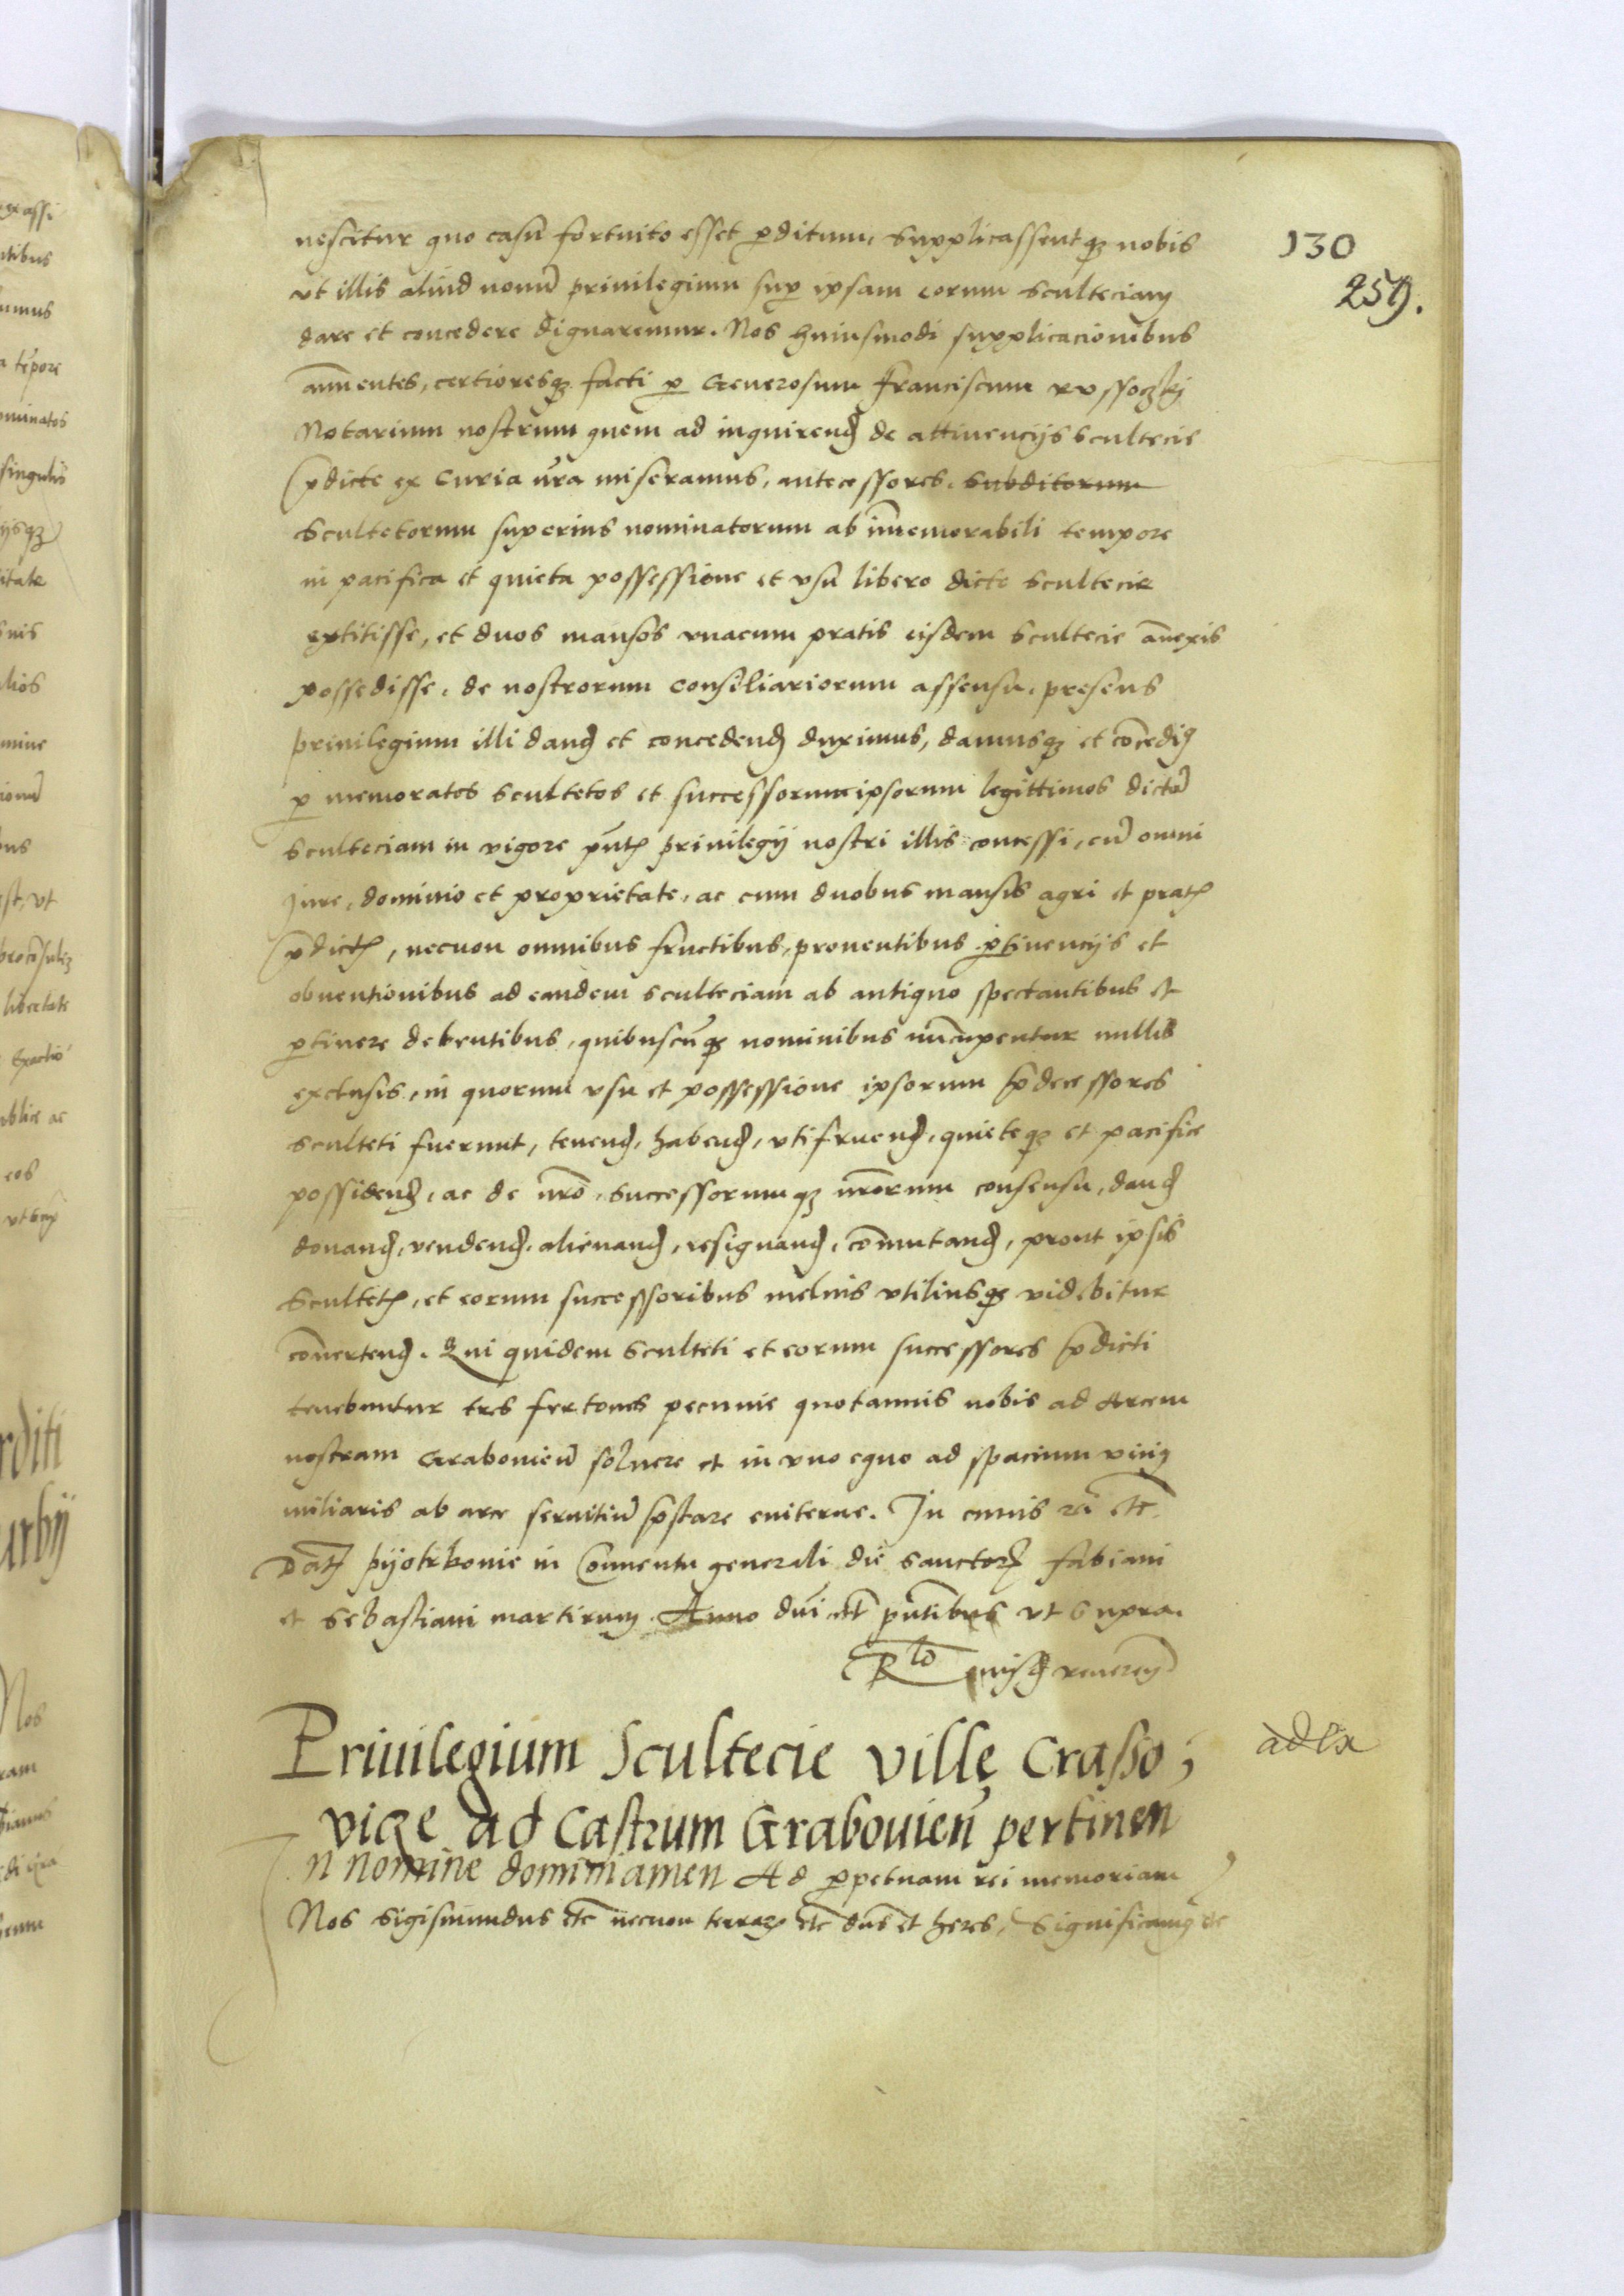 130
259.
nescitur quo casu fortuito esset pditum, Supplicassentq nobis
vt illis aliud nouū priuilegium sup ipsam eorum Sculteciam
dare et concedere dignaremur. Nos huiusmodi supplicacionibus
annuentes, certioresq facti p Generosum Franciscum
Notarium nostrum quem ad inquirend de attinencijs Scultecie
pdicte ex Curia nra miseramus, antecessores. Subditorum
Scultetorum superius nominatorum ab immemorabili tempore
in pacifica et quieta possessione et vsu libero dicte Scultecie
extitisse, et duos mansos vnacum pratis eisdem Scultecie anexis
possedisse, de nostrorum Consiliariorum assensu, presens
priuilegium illi dand et concedend duximus, damusq et concedim9
p memoratos Scultetos et successorum ipsorum legittimos dictā
Sculteciam in vigore pntis priuilegij nostri illis concessi, cū omni
Jure, dominio et proprietate, ac cum duobus mansis agri et pratis
pdictis, necnon omnibus fructibus, prouentibus ptinencijs et
obuentionibus ad eandem Sculteciam ab antiquo spectantibus et
ptinere debentibus, quibuscūq nominibus nuncupentur nullis
exclusis, in quorum vsu et possessione ipsorum pdecessores
Sculteti fuerunt, tenend, habend, vtifruend, quieteq et pacifice
possidend, ac de nro, Successorumq nrorum consensu, dand
donand, vendend, alienand, resignand, comutand, prout ipsis
Scultetis, et eorum successoribus melius vtiliusq videbitur
conuertend. Qui quidem Sculteti et eorum successores pdicti
tenebuntur tres fertones pecunie quotannis nobis ad Arcem
nostram Grabouieñ soluere et in vno equo ad spacium vnig
miliaris ab arce seruitiū pstare euiterne. In cuius rei etc.
Dat pijotrkouie in Conuentu generali die Sanctor Fabiani
et Sebastiani martirum Anno dni etc pntibus vt Supra.
Rlo
Priuilegium Scultecie ville Crasso,
vicze ad Castrum Grabouień pertinen
adlx
In nomine domini amen Ad ppetuam rei memoriam
Nos Sigismundus etc necnon terrar etc dns et heres, Significamq etc